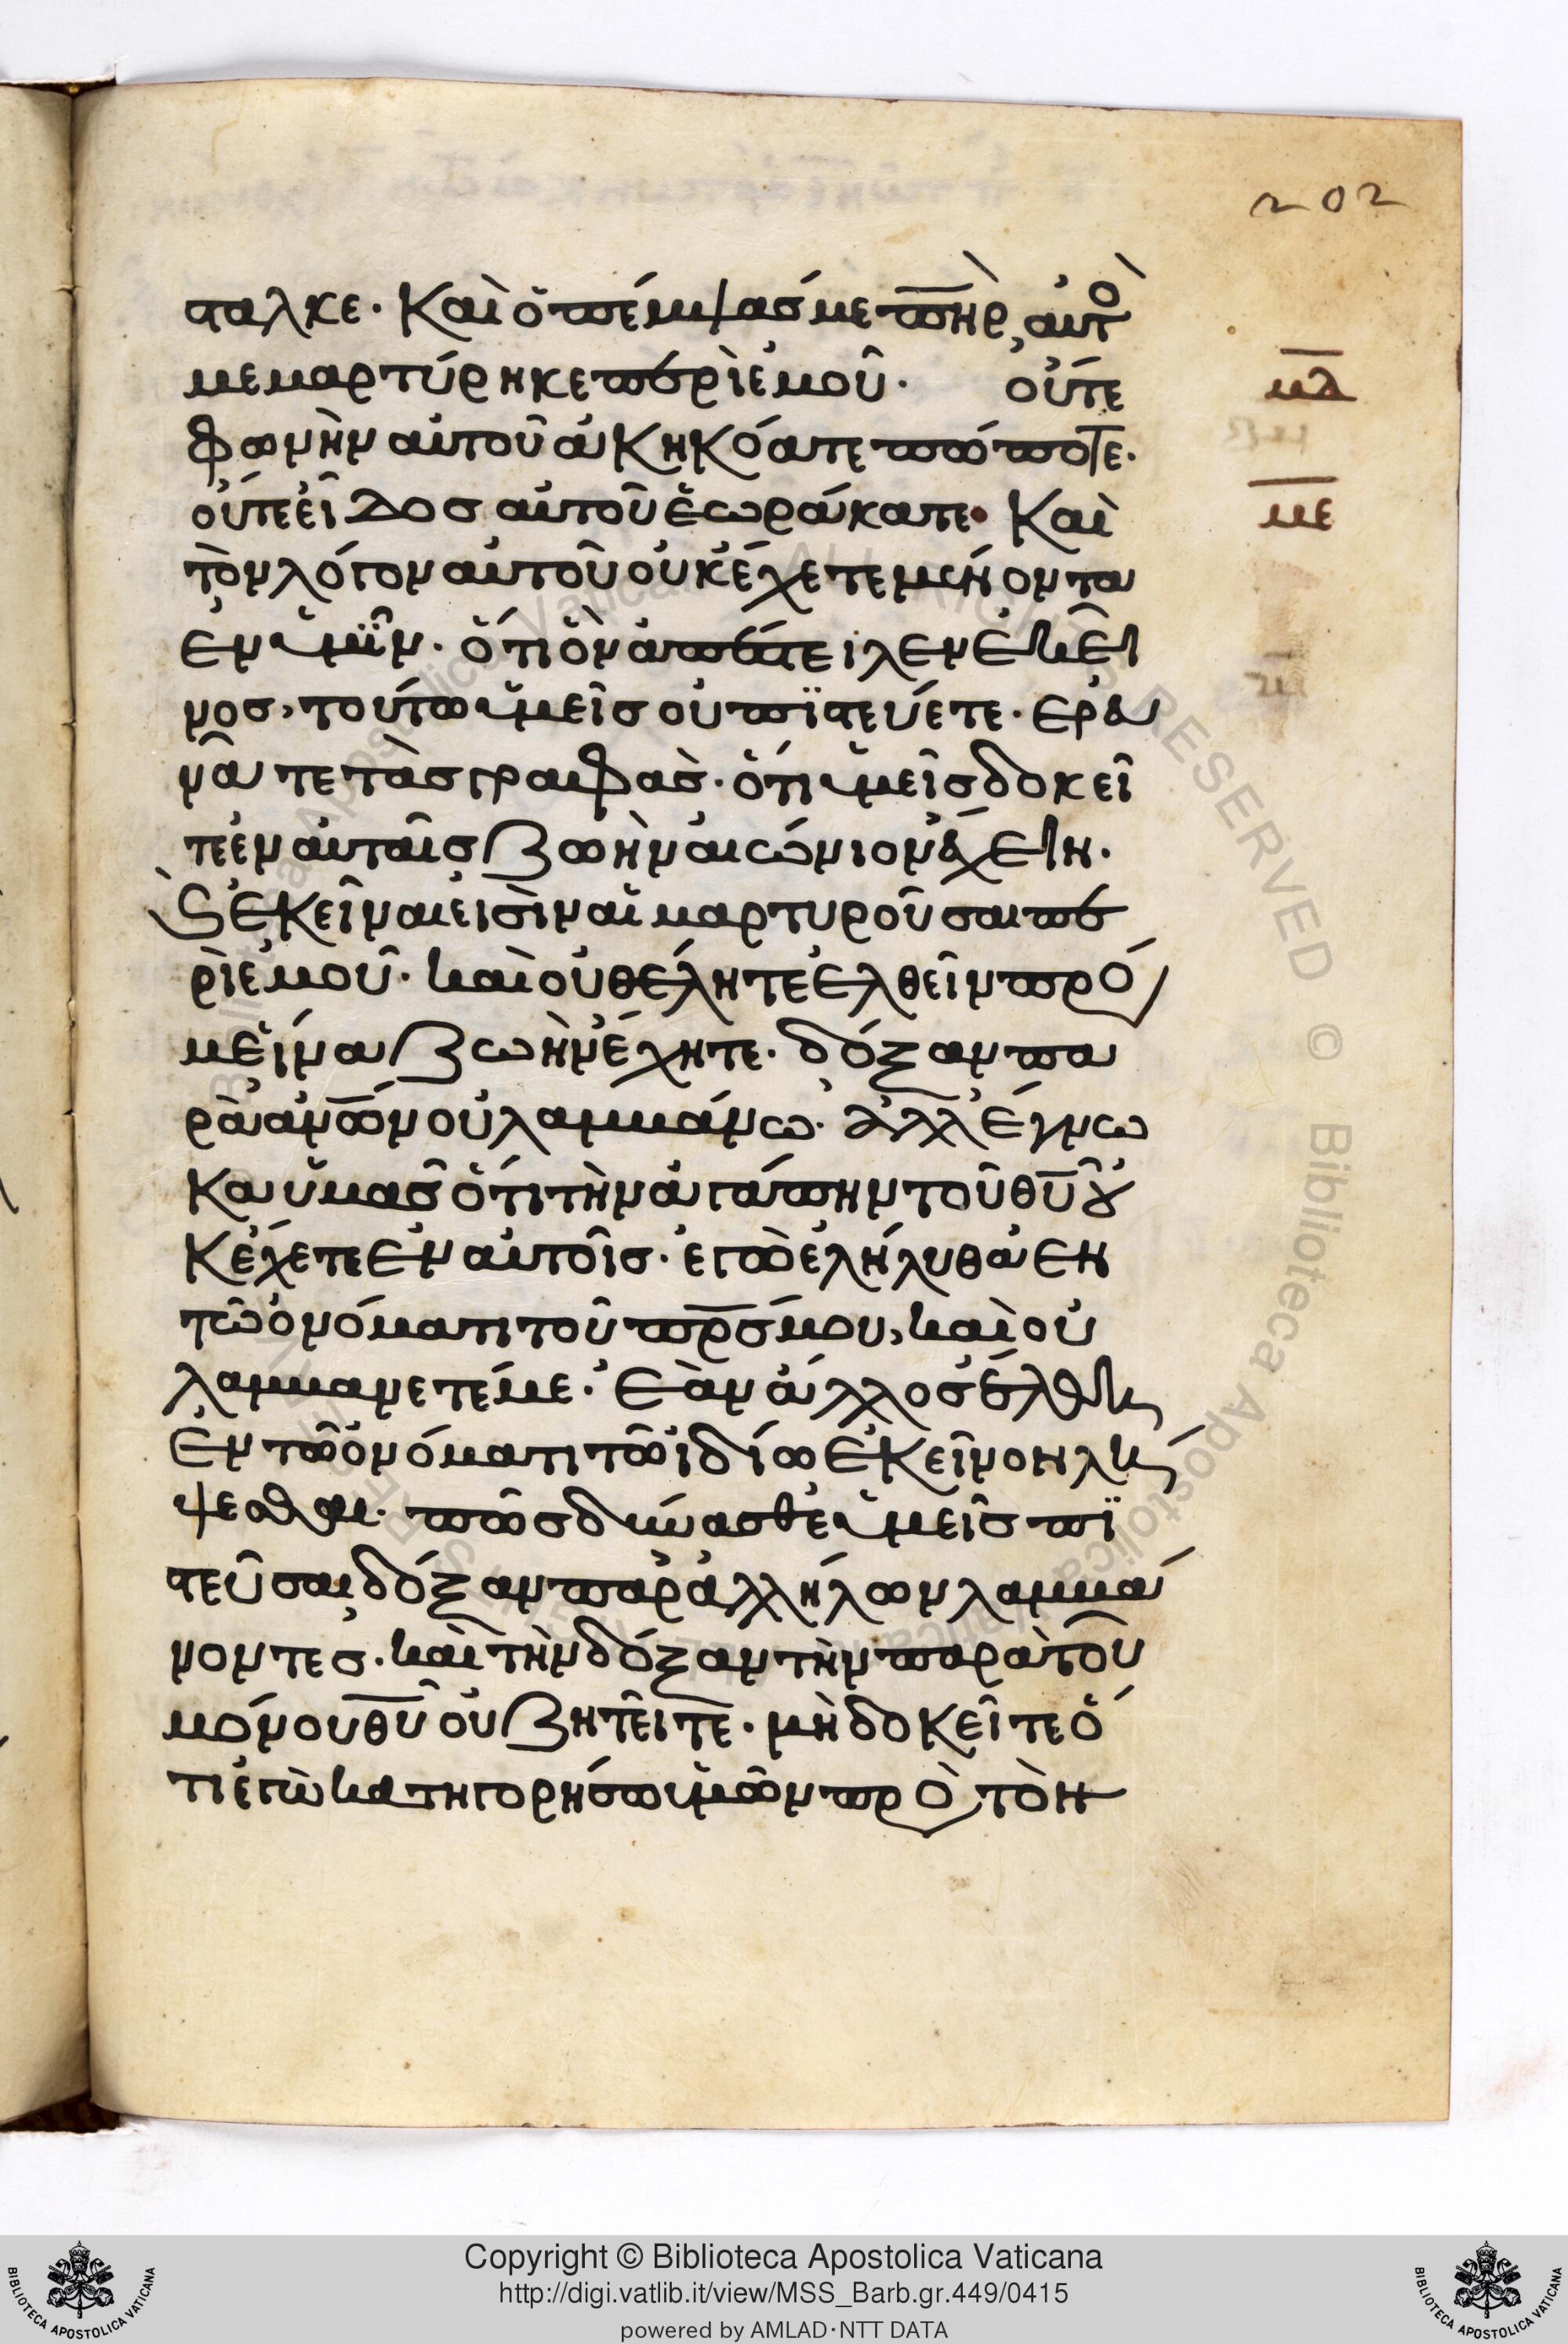 202
σταλκε· Καὶ ὁ πέμψασ με πηρ, αὐτὸ
μεμαρτύρηκε περὶ ἐμοῦ· οὔτε
μδ
φωνὴν αὐτοῦ ἀκηκόατε πώποτε·
οὔτε εἶδοσ αὐτοῦ ἑωράκατε· Καὶ
με
τὸν λόγον αὐτοῦ οὐκ ἔχετε μένοντα
ἐν ὑμῖν· ὅτι ὃν ἀπέστειλεν ἐκεῖ
νοσ, τούτω ὑμεῖσ οὐ πιστεύετε· ερευ
νᾶτε τὰσ γραφάσ· ὅτι ὑμεῖσ δοκεῖ
τε ἐν αὐταῖσ ζωὴν αἰώνιον ἔχειν·
ϗ ἐκεῖναι εἰσὶν αἱ μαρτυροῦσαι πε
ρὶ ἐμοῦ· καὶ οὐ θέλητε ἐλθεῖν πρόσ
με ἵνα ζωὴν ἔχητε· δόξαν πα
ρὰ ἀνων οὐ λαμβάνω· ἀλλ' ἔγνω
κα ὑμᾶσ ὅτι τὴν ἀγάπην τοῦ θυ οὐ
κ ἔχετε ἐν αὐτοῖσ· ἐγὼ ἐλήλυθα ἐν
τῶ ὀνόματι τοῦ πρσ μου, καὶ οὐ
λαμβανετέ με· ἐὰν ἄλλοσ ἔλθη
ἐν τῶ ὀνόματι τῶ ἰδίω ἐκεῖνον λή
ψεσθαι· πῶσ δύνασθε ὑμεῖσ πι
στεῦσαι δόξαν παρ' ἀλλήλων λαμβά
νοντεσ· καὶ τὴν δόξαν τὴν παρὰ τοῦ
μόνου θυ οὐ ζητεῖτε· μὴ δοκεῖτε ὅ
τι ἐγὼ κατηγορήσω ὑμῶν πρὸσ τὸν
Copyright © Biblioteca Apostolica Vaticana
http://digi.vatlib.it/view/MSS_Barb.gr.449/0415
powered by AMLAD·NTT DATA
BIBLIOTECA APOSTOLICA VATICANA
BIBLIOTECA APOSTOLICA VATICANA